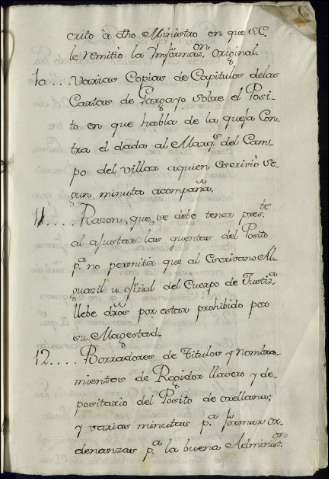 crito á dho Ministro en que S.E.
le remitio la Informac.on original
10.... Varias Copias de Capitulos de las
Cartas de Gargayo sobre el Posi-
to en que habla de la queja con-
tra el dada al Marq.s del Cam-
po del Villar a quien escrivió se-
gun minuta acompaña.
11.... Razon, que se debe tener pres.te
al ajustar las quentas del Posito
p.a no permitir que al Escrivano Al-
guacil u oficial del Cuerpo de Justi.a
llebe dros por estar prohibido por
su Magestad.
12.... Borradores de Titulos y Nombra-
mientos de Regidor llavero y de-
positario del Posito de orellana;
y varias minutas p.a formar or-
denanzas p.a la buena Adminis.on